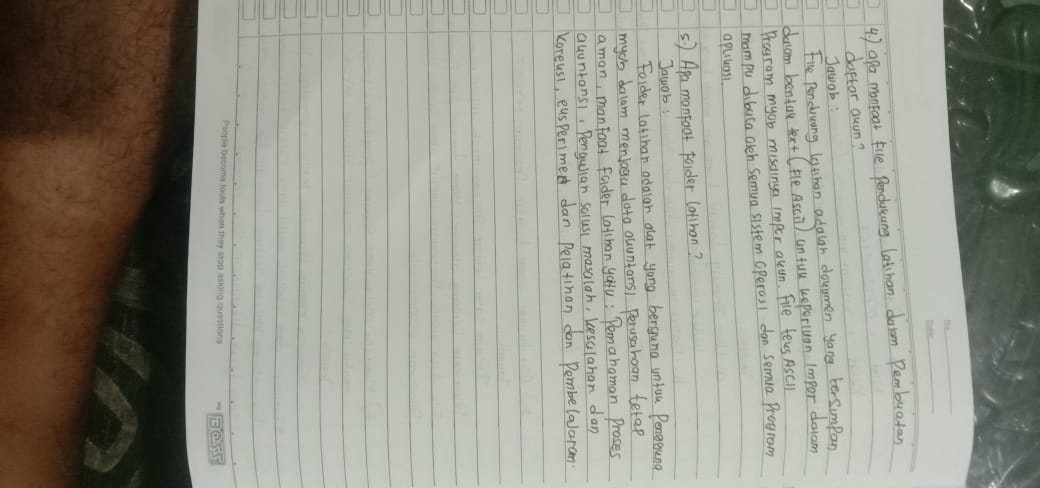 No.
Date:
4.) apa manfaat File Pendukung latihan dalam Pembuatan
daftar akun?
Jawab :
File Pendukung latihan adalah dokumen yang bersimpan
dalam bentuk text (File Ascii) untuk keperluan Impor dalam
Program myob misalnya impor akun. File teks ASCII
mampu dibuka oleh semua sistem operasi dan semua Program
aplikasi.
5.) Apa manfaat folder latihan?
Jawab :
Folder latihan adalah alat yang berguna untuk Pengguna
myob dalam menjaga data akuntansi Perusahaan tetap
aman, manfaat Folder latihan yaitu : Pemahaman Proses
akuntansi, Pengujian solusi masalah, kesalahan dan
Koreksi, eksperimen dan Pelatihan dan Pembelajaran.
People become fools when they stop asking questions
BOSS